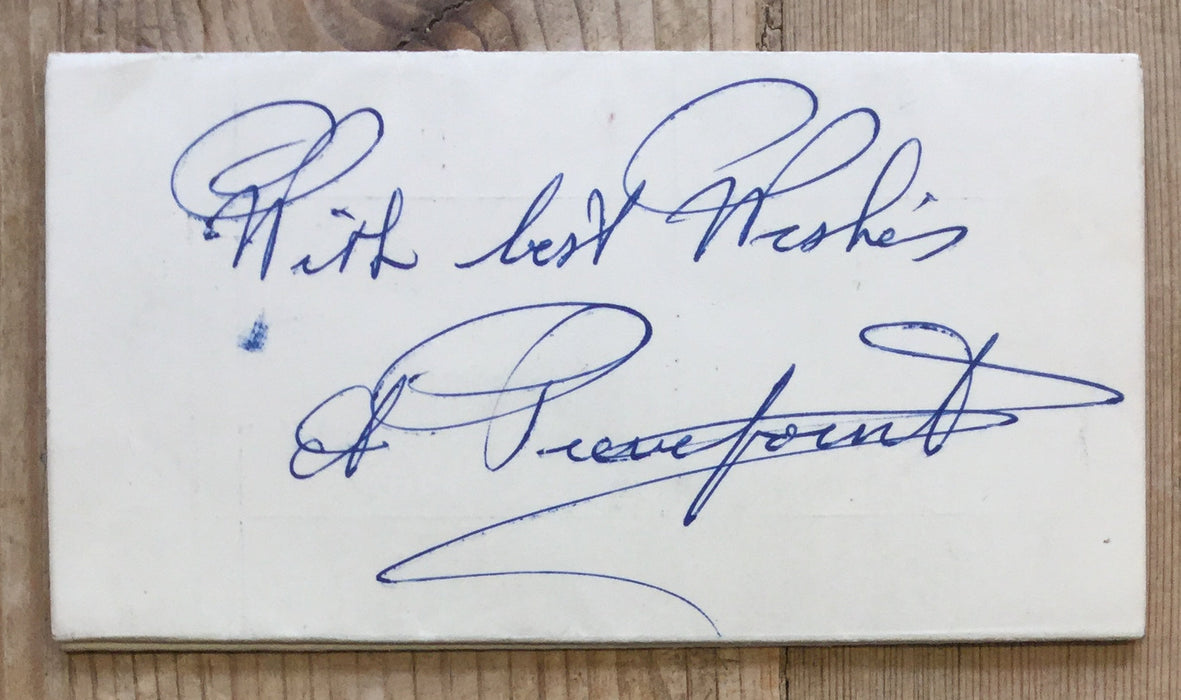 With best Wishes
A. Pierrepoint